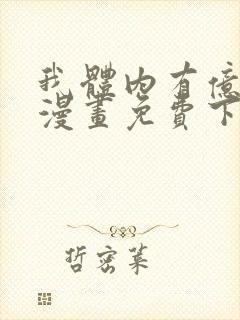 我體內有億
漫畫免費下
哲密葉